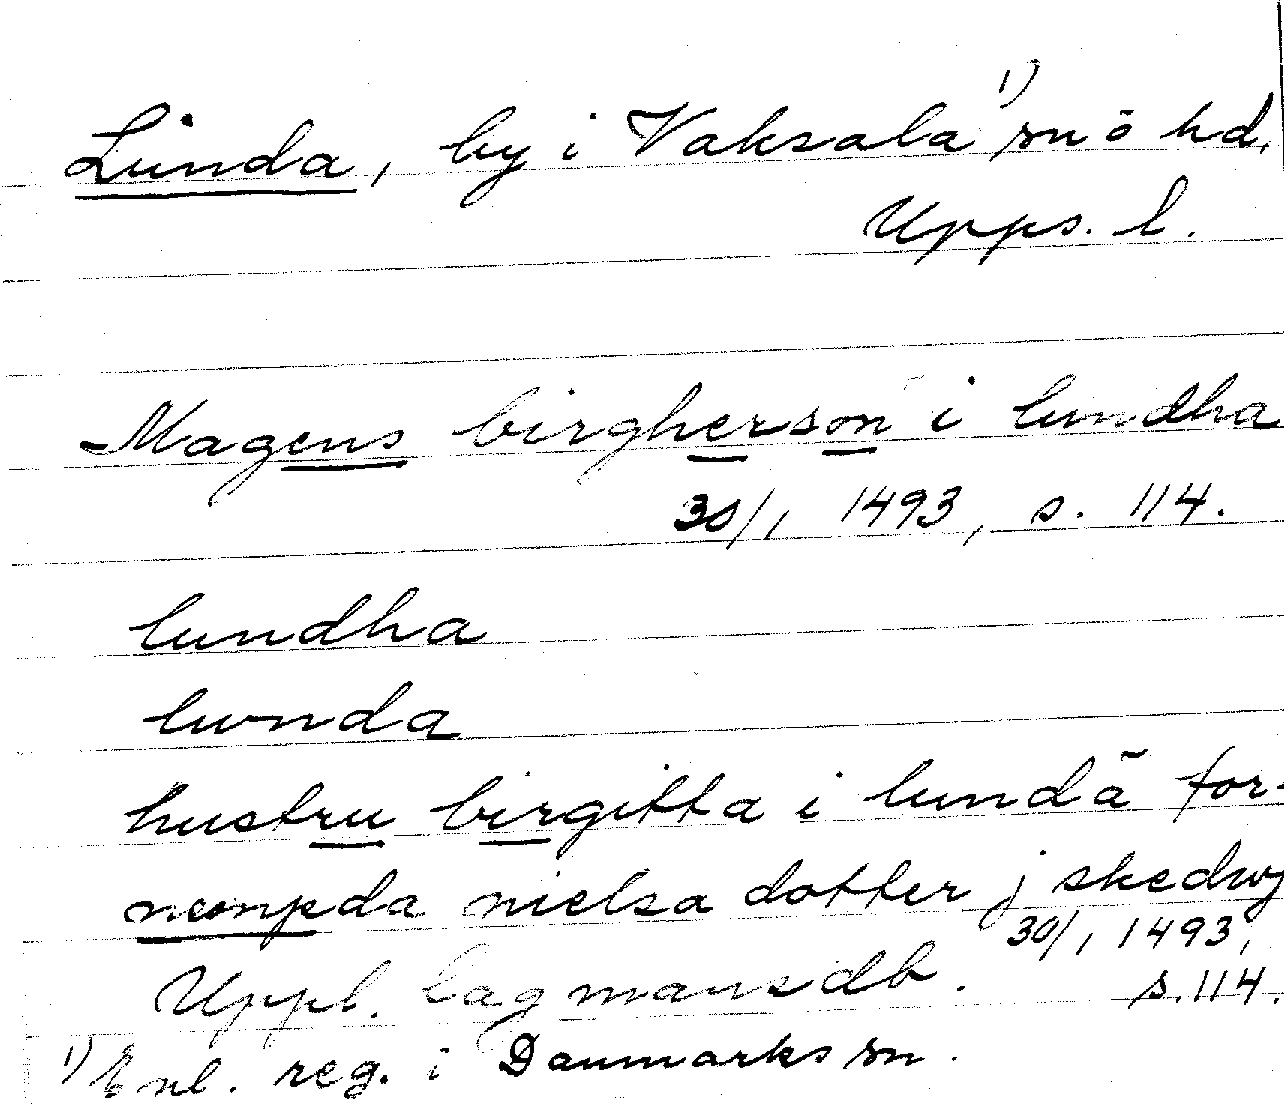 Lunda, by i Vaksala ¹⁾ sn o hd,
Upps. l.
Magens birgherson i lundha
30/1 1493, s. 114.
lundha
lunda
hustru birgitta i lundā for-
nempda nielsa dotter j skedwj
30/1 1493,
Uppl. lagmansdb. s. 114.
¹⁾ Enl. reg. i Danmarks sn.